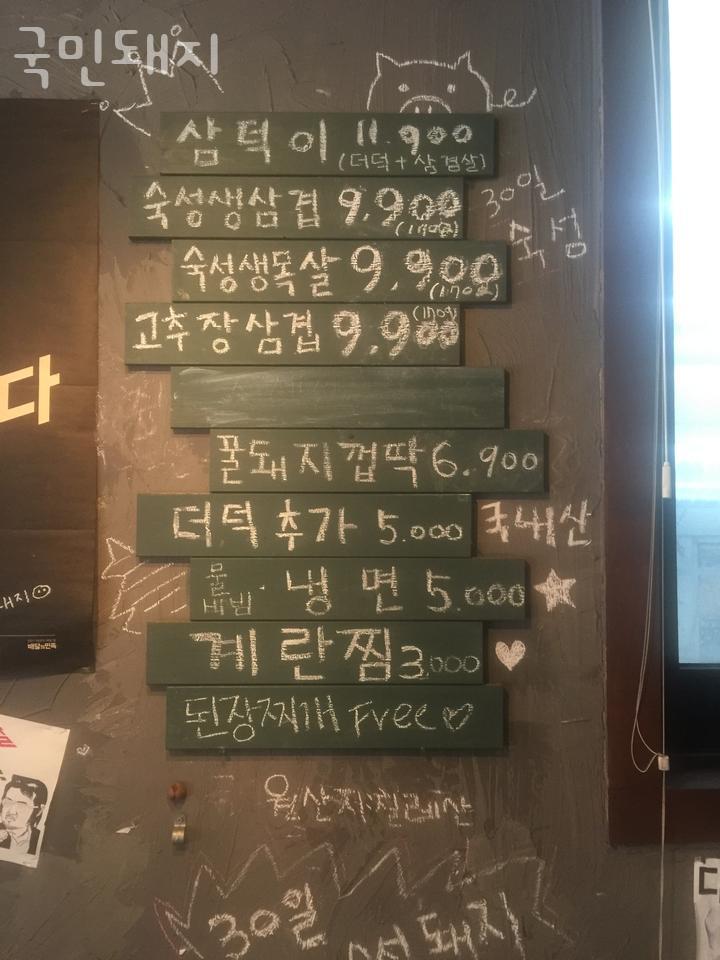 국민돼지
삼덕이 11.900
(더덕+삼겹살)
숙성생삼겹 9.900
(170g)
30일
숙성
숙성생목살 9.900
(170g)
고추장삼겹 9.900
(170g)
다
꿀돼지껍딱 6.900
더덕추가 5.000 국내산
물
비빔 냉면 5.000
돼지
배달의민족
계란찜 3.000
된장찌개 Free
30일
돼지